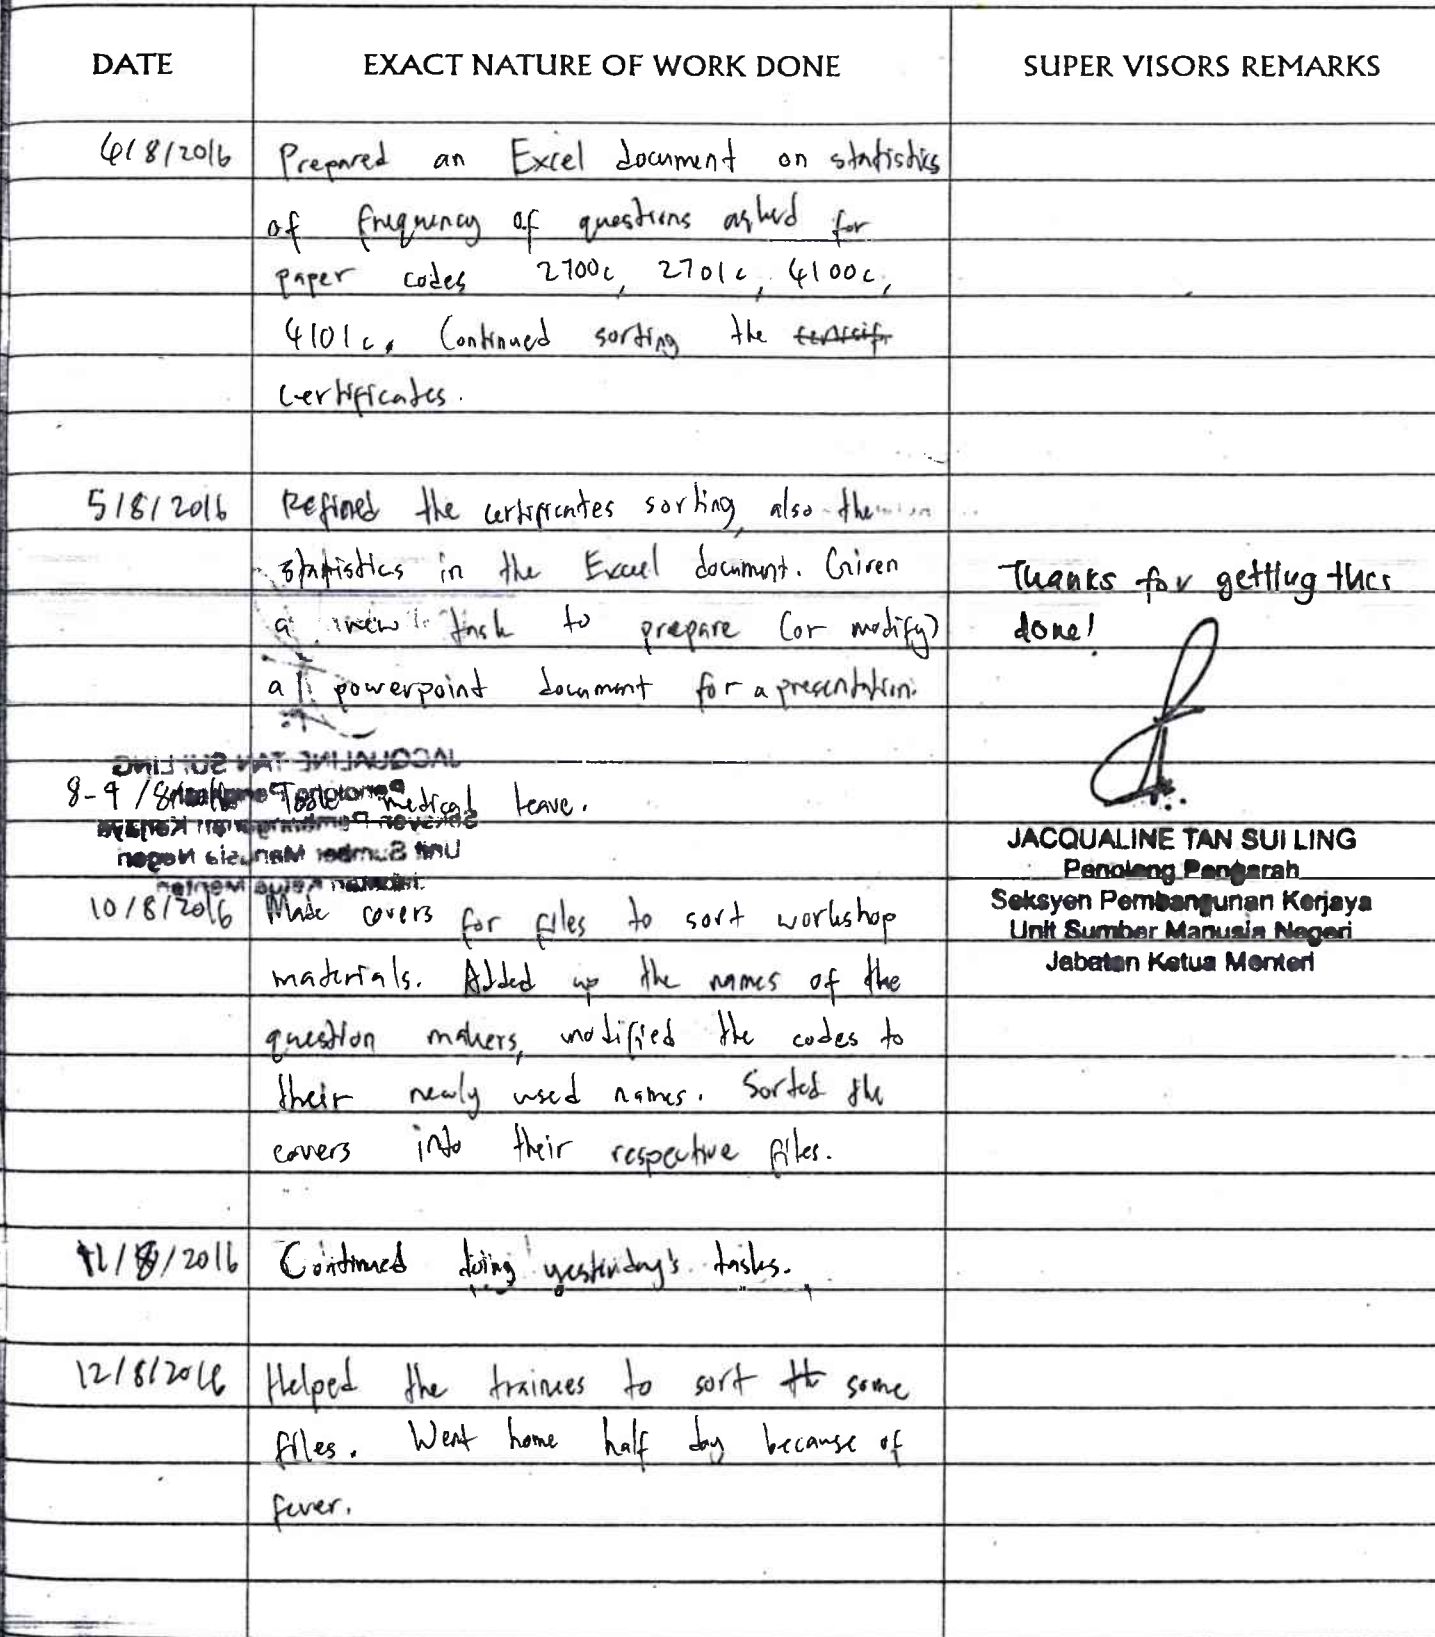 DATE EXACT NATURE OF WORK DONE SUPER VISORS REMARKS
4/8/2016 Prepared an Excel document on statistics
of frequency of questions asked for
paper codes 2700c, 2701c, 4100c,
4101c. Continued sorting the
certificates.
5/8/2016 Refined the certificates sorting, also the
statistics in the Excel document. Given
a new task to prepare (or modify)
a powerpoint document for a presentation.
Thanks for getting this
done!
8-9/8/2016 Took medical leave.
JACQUALINE TAN SUI LING
Penolong Pengarah
Seksyen Pembangunan Kerjaya
Unit Sumber Manusia Negeri
Jabatan Ketua Menteri
10/8/2016 Made covers for files to sort workshop
materials. Added up the names of the
question makers, modified the codes to
their newly used names. Sorted the
covers into their respective files.
11/8/2016 Continued doing yesterday's tasks.
12/8/2016 Helped the trainees to sort some
files. Went home half day because of
fever.